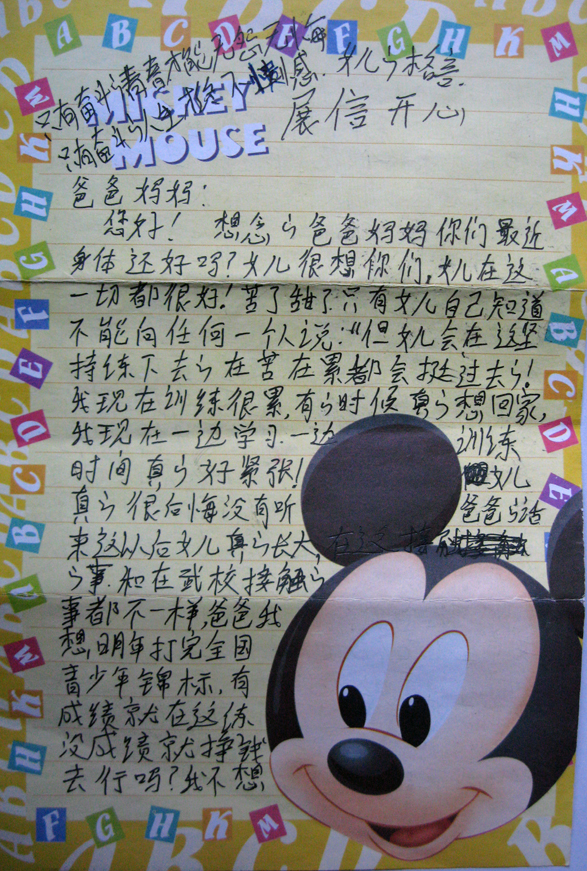 A B C D E F G H K M
只有奋斗的青春才能无
只有奋斗的人生
女儿的格言.
MICKEY
MOUSE
展信开心
爸爸妈妈:
您好! 想念的爸爸妈妈你们最近
身体还好吗?女儿很想你们,女儿在这
一切都很好!苦了甜了只有女儿自己知道
不能向任何一个人说:"但女儿会在这坚
持练下去的在苦在累都会挺过去的!
我现在训练很累,有的时候真的想回家,
我现在一边学习一边训练
时间真的好紧张! 女儿
真的很后悔没有听爸爸的话
来这以后女儿真的长大,
的事,和在武校接触的
事都不一样,爸爸我
想明年打完全国
青少年锦标,有
成绩就在这练
没成绩就挣钱
去行吗?我不想
F G H K M